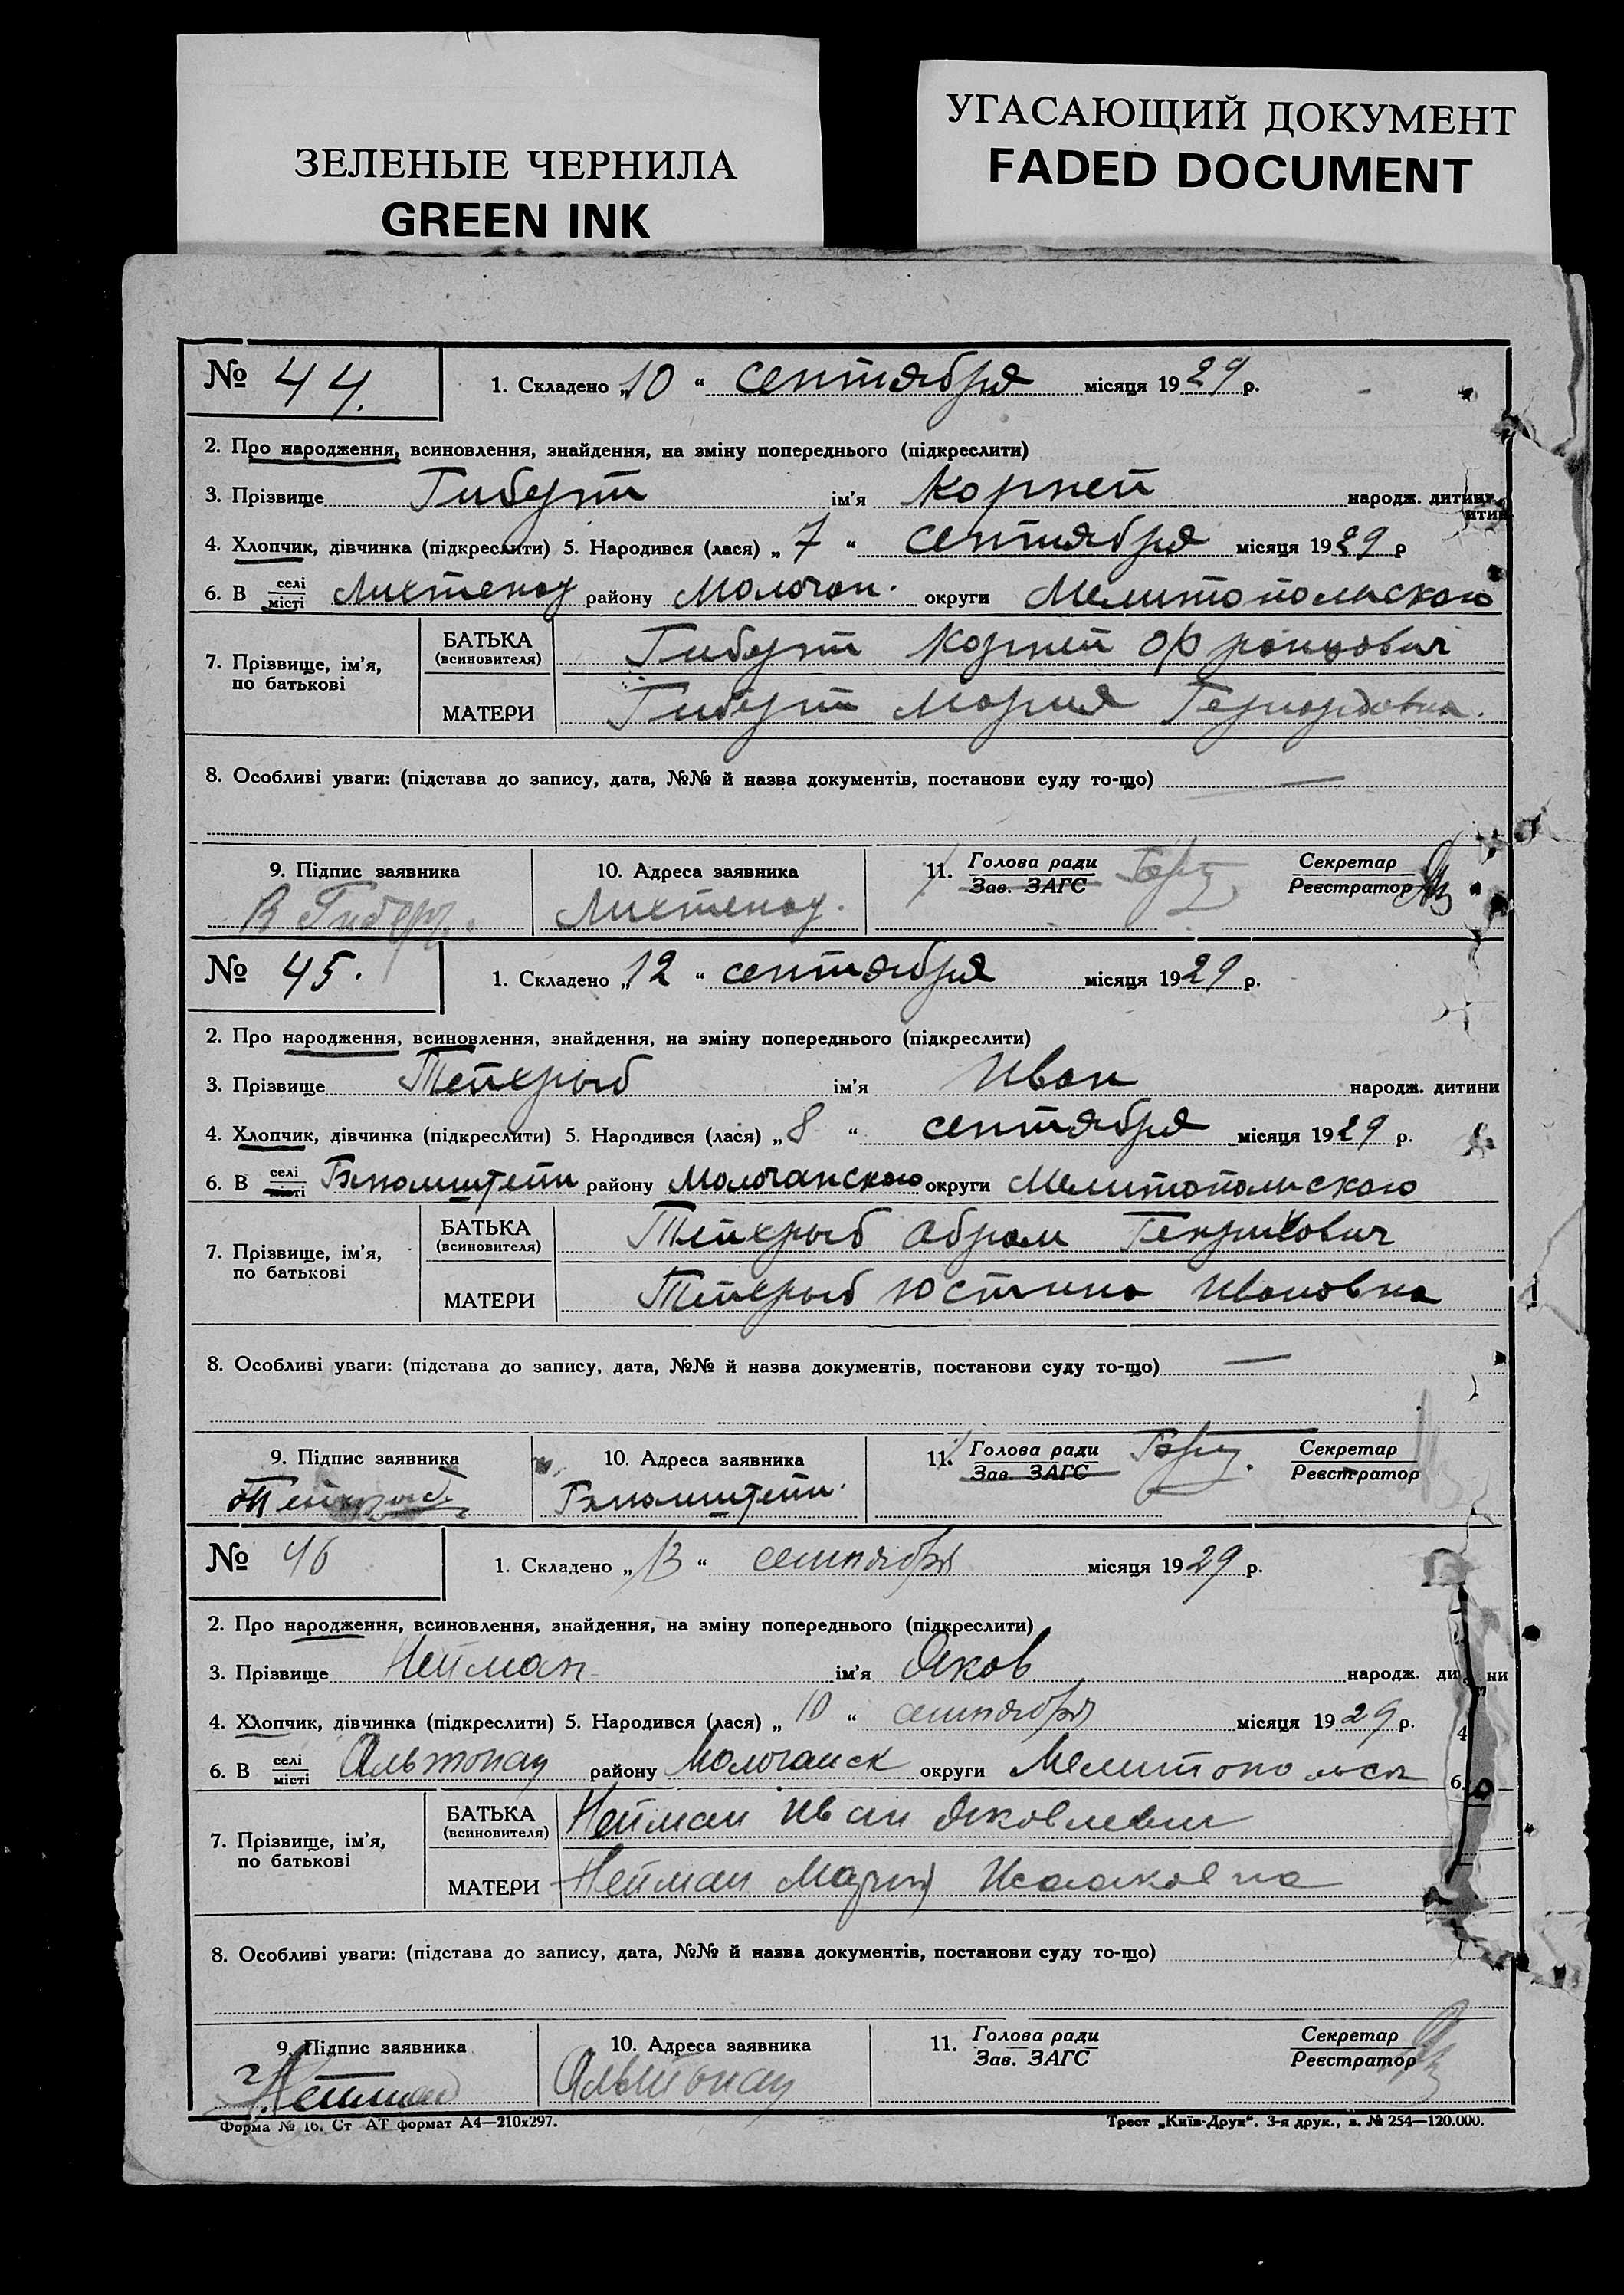 ЗЕЛЕНЫЕ ЧЕРНИЛА
GREEN INK
УГАСАЮЩИЙ ДОКУМЕНТ
FADED DOCUMENT
№ 44. 1. Складено „10“ сентября місяця 1929 р.
2. Про народження, всиновлення, знайдення, на зміну попереднього (підкреслити)
3. Прізвище Гиберт ім'я Корней народж. дитини
4. Хлопчик, дівчинка (підкреслити) 5. Народився (лася) „7“ сентября місяця 1929 р
6. В селі місті Лихтенау району Молочан. округи Мелитопольского
7. Прізвище, ім'я, по батькові
БАТЬКА (всиновителя) Гиберт Корней Францович
МАТЕРИ Гиберт Мария Гергардовна.
8. Особливі уваги: (підстава до запису, дата, №№ й назва документів, постанови суду то-що) —
9. Підпис заявника 10. Адреса заявника 11. Голова ради Зав. ЗАГС Секретар Реєстратор
Лихтенау.
№ 45. 1. Складено „12“ сентября місяця 1929 р.
2. Про народження, всиновлення, знайдення, на зміну попереднього (підкреслити)
3. Прізвище Тейхрыб ім'я Иван народж. дитини
4. Хлопчик, дівчинка (підкреслити) 5. Народився (лася) „8“ сентября місяця 1929 р.
6. В селі місті Блюмштейн району Молочанского округи Мелитопольского
7. Прізвище, ім'я, по батькові
БАТЬКА (всиновителя) Тейхрыб Абрам Генрихович
МАТЕРИ Тейхрыб Юстина Ивановна
8. Особливі уваги: (підстава до запису, дата, №№ й назва документів, постанови суду то-що) —
9. Підпис заявника 10. Адреса заявника 11. Голова ради Зав. ЗАГС Секретар Реєстратор
Тейхрыб Блюмштейн.
№ 46 1. Складено „13“ сентября місяця 1929 р.
2. Про народження, всиновлення, знайдення, на зміну попереднього (підкреслити)
3. Прізвище Нейман ім'я Яков народж. ди ни
4. Хлопчик, дівчинка (підкреслити) 5. Народився (лася) „10“ сентября місяця 1929 р.
6. В селі місті Альтонау району Молочанск округи
7. Прізвище, ім'я, по батькові
БАТЬКА (всиновителя) Нейман Иван Яковлевич
МАТЕРИ Нейман Мария Исааковна
8. Особливі уваги: (підстава до запису, дата, №№ й назва документів, постанови суду то-що)
9. Підпис заявника 10. Адреса заявника 11. Голова ради Зав. ЗАГС Секретар Реєстратор
Нейман Альтонау
Форма № 16. Ст АТ формат А4—210х297. Трест „Київ-Друк“. 3-я друк., з. № 254—120.000.